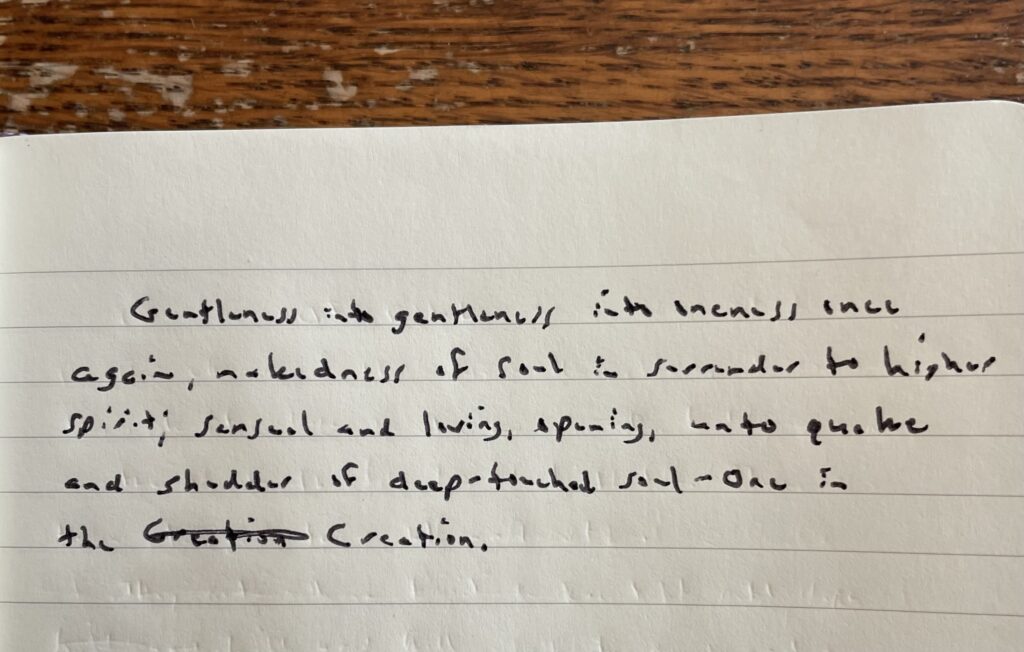 Gentleness into gentleness into oneness once
again, nakedness of soul in surrender to higher
spirit; sensual and loving, opening, unto quake
and shudder of deep-touched soul - One in
the Creation Creation.